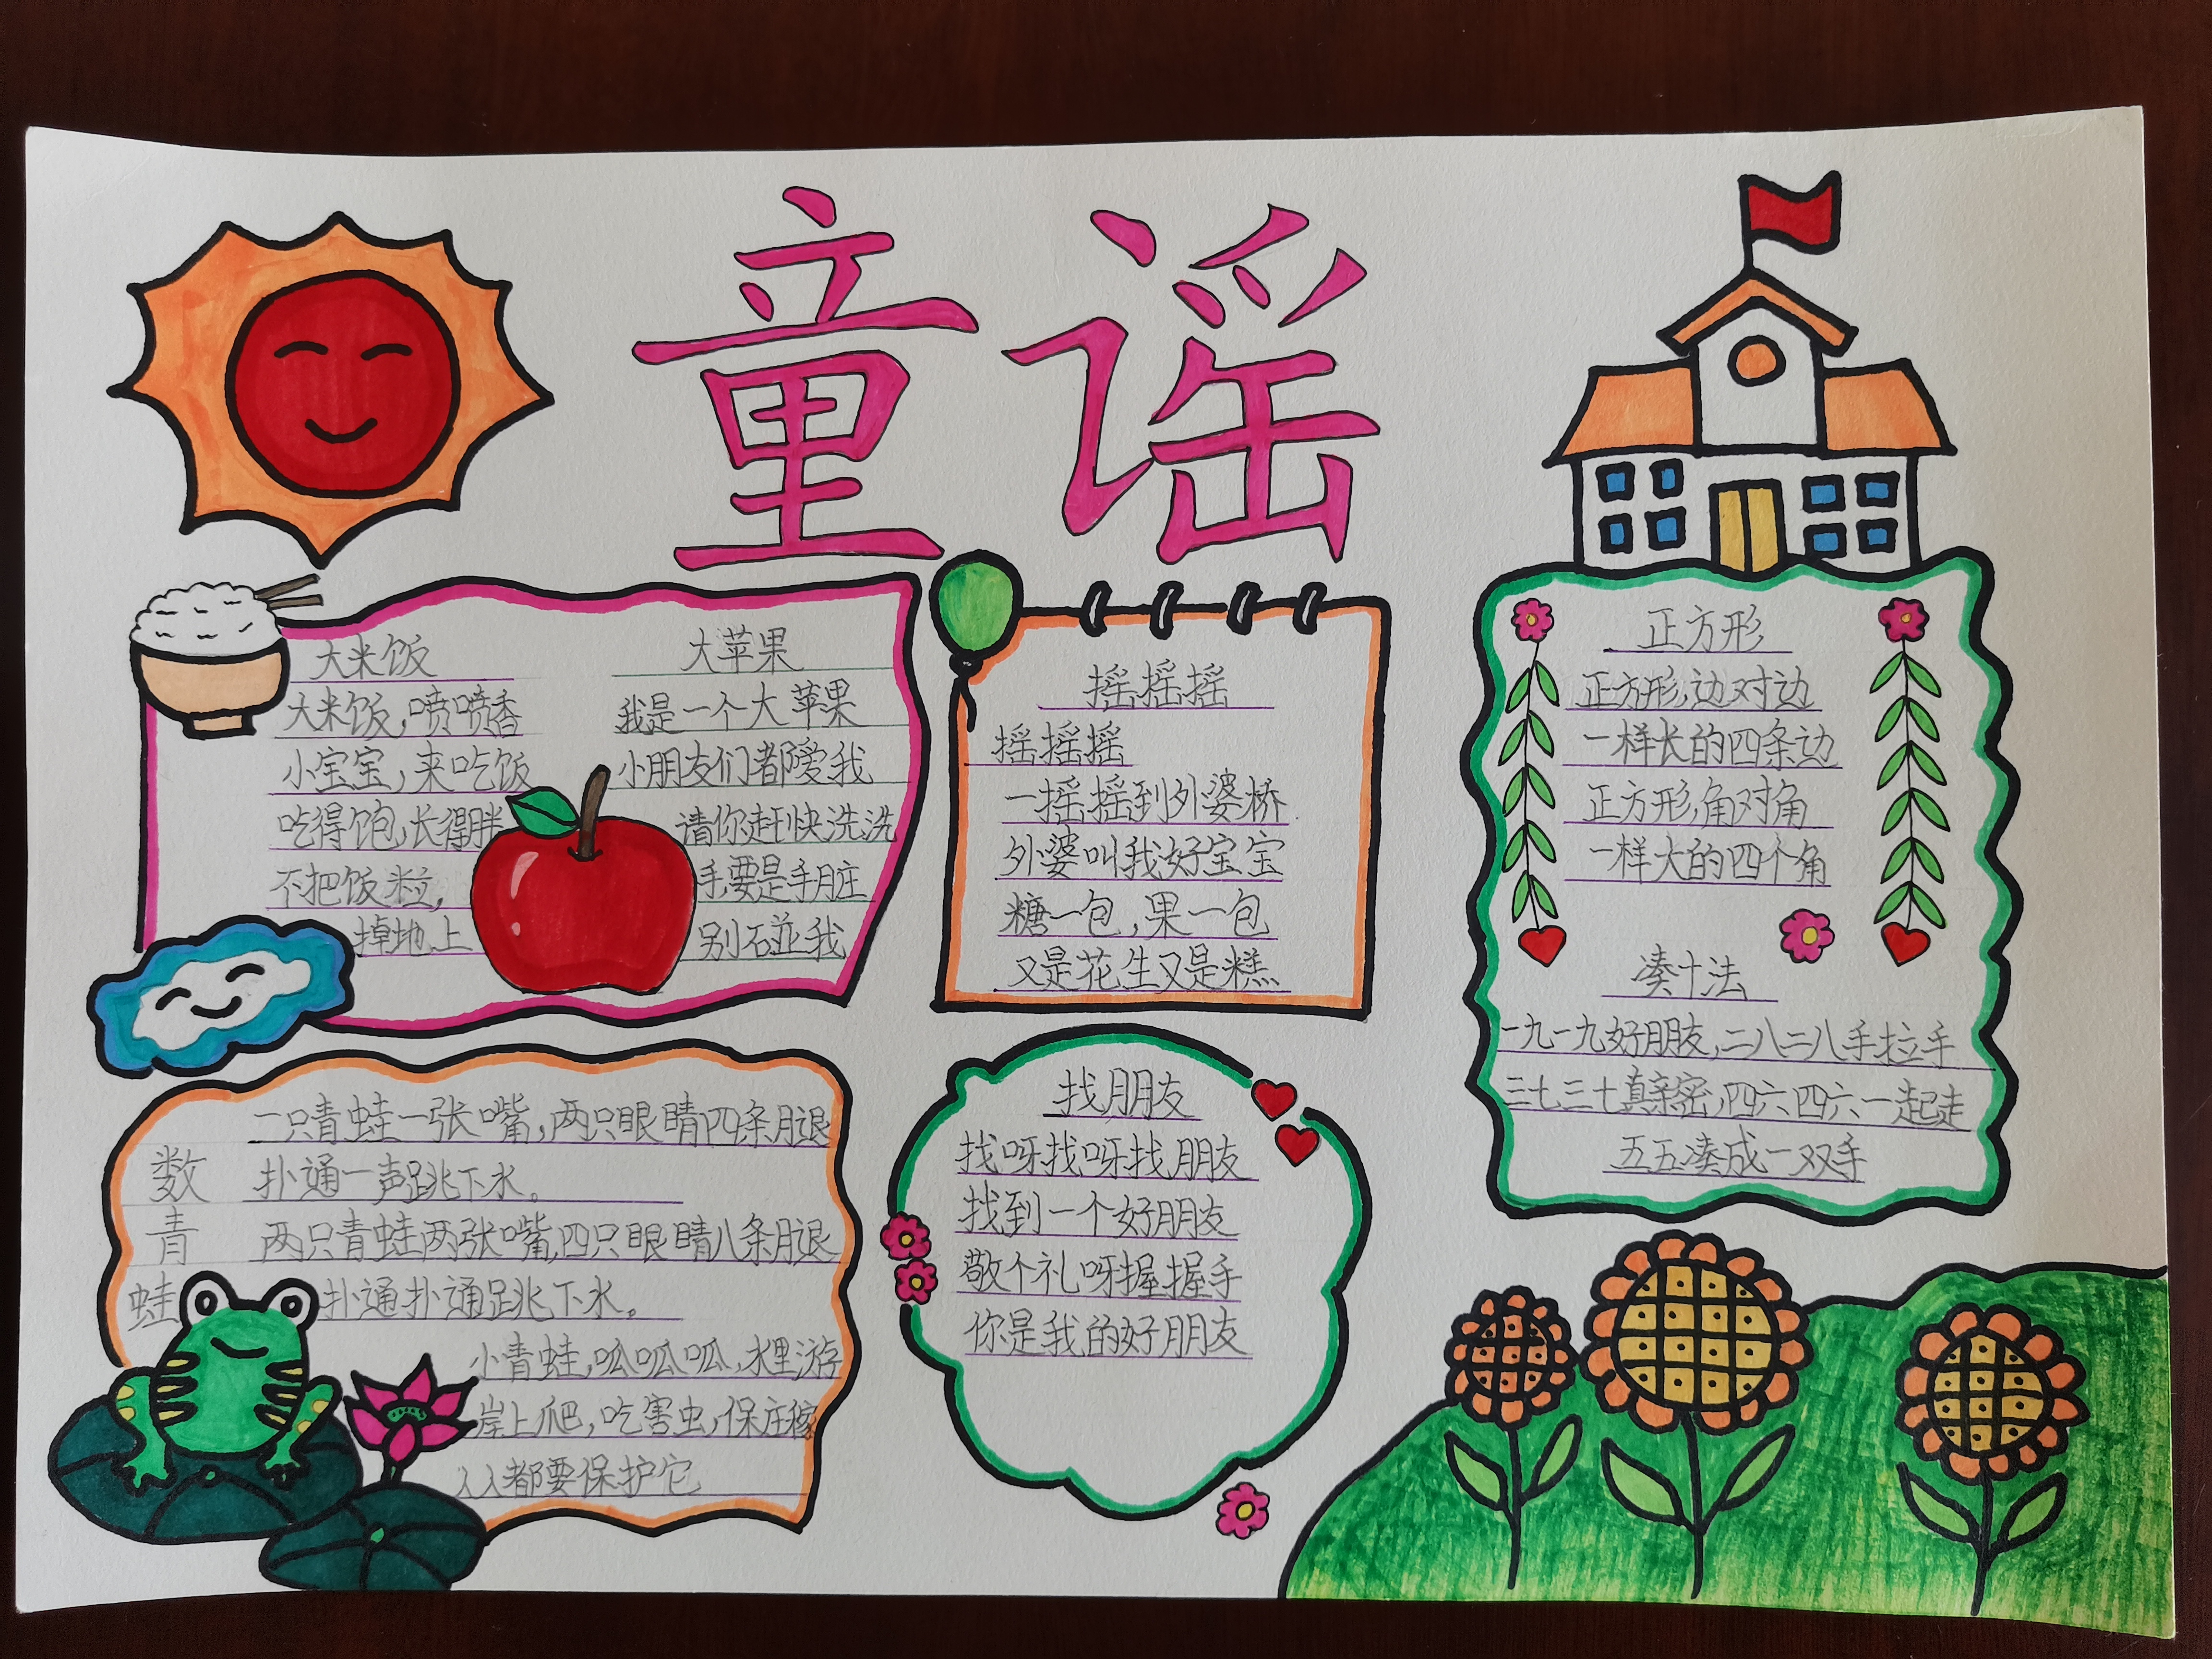 童谣
大米饭
大米饭,喷喷香
小宝宝,来吃饭
吃得饱,长得胖
不把饭粒,
掉地上
大苹果
我是一个大苹果
小朋友们都爱我
请你赶快洗洗
手,要是手脏
别碰我
摇摇摇
摇摇摇
一摇摇到外婆桥
外婆叫我好宝宝
糖一包,果一包
又是花生又是糕
正方形
正方形,边对边
一样长的四条边
正方形,角对角
一样大的四个角
凑十法
一九一九好朋友,二八二八手拉手
三七三十真亲密,四六四六一起走
五五凑成一双手
数青蛙
一只青蛙一张嘴,两只眼睛四条腿
扑通一声跳下水。
两只青蛙两张嘴,四只眼睛八条腿
扑通扑通跳下水。
小青蛙,呱呱呱,水里游
岸上爬,吃害虫,保庄稼
人人都要保护它
找朋友
找呀找呀找朋友
找到一个好朋友
敬个礼呀握握手
你是我的好朋友